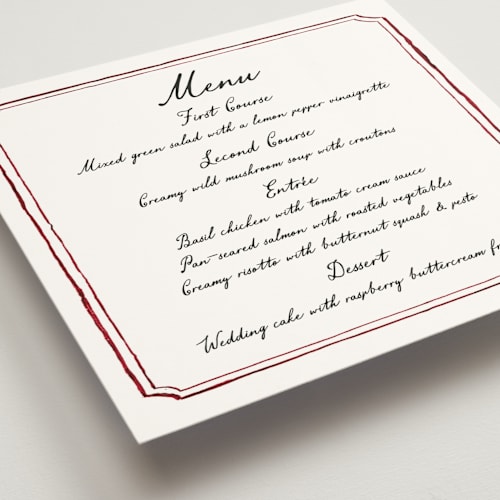 Menu
First Course
Mixed green salad with a lemon pepper vinaigrette
Second Course
Creamy wild mushroom soup with croutons
Entrée
Basil chicken with tomato cream sauce
Pan-seared salmon with roasted vegetables
Creamy risotto with butternut squash & pesto
Dessert
Wedding cake with raspberry buttercream